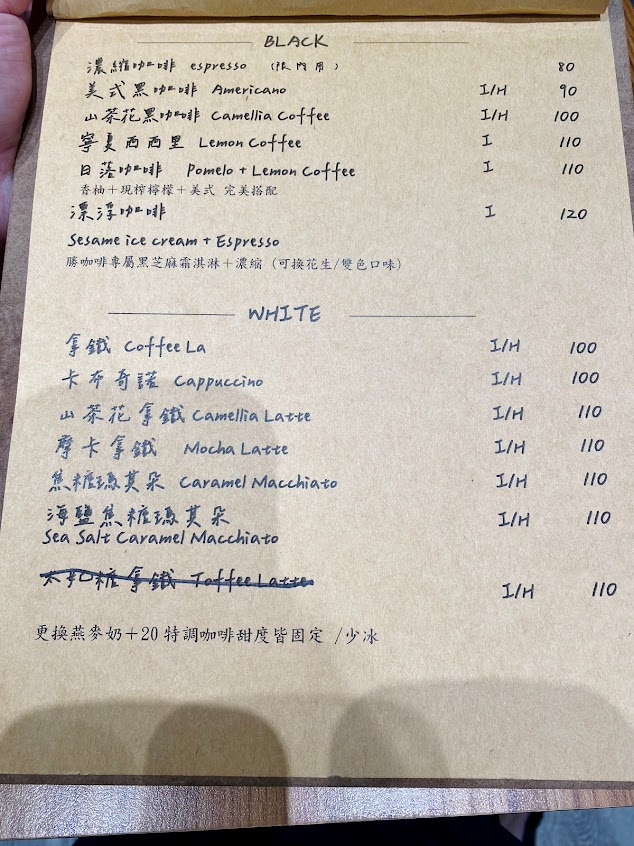 BLACK
濃縮咖啡 espresso （限內用） 80
美式黑咖啡 Americano I/H 90
山茶花黑咖啡 Camellia Coffee I/H 100
寧夏西西里 Lemon Coffee I 110
日落咖啡 Pomelo + Lemon Coffee I 110
香柚＋現榨檸檬＋美式 完美搭配
漂浮咖啡 I 120
Sesame ice cream + Espresso
勝咖啡專屬黑芝麻霜淇淋＋濃縮（可換花生/雙色口味）
WHITE
拿鐵 Coffee La I/H 100
卡布奇諾 Cappuccino I/H 100
山茶花拿鐵 Camellia Latte I/H 110
摩卡拿鐵 Mocha Latte I/H 110
焦糖瑪其朵 Caramel Macchiato I/H 110
海鹽焦糖瑪其朵 I/H 110
Sea Salt Caramel Macchiato
太妃糖拿鐵 Toffee Latte I/H 110
更換燕麥奶＋20 特調咖啡甜度皆固定 /少冰